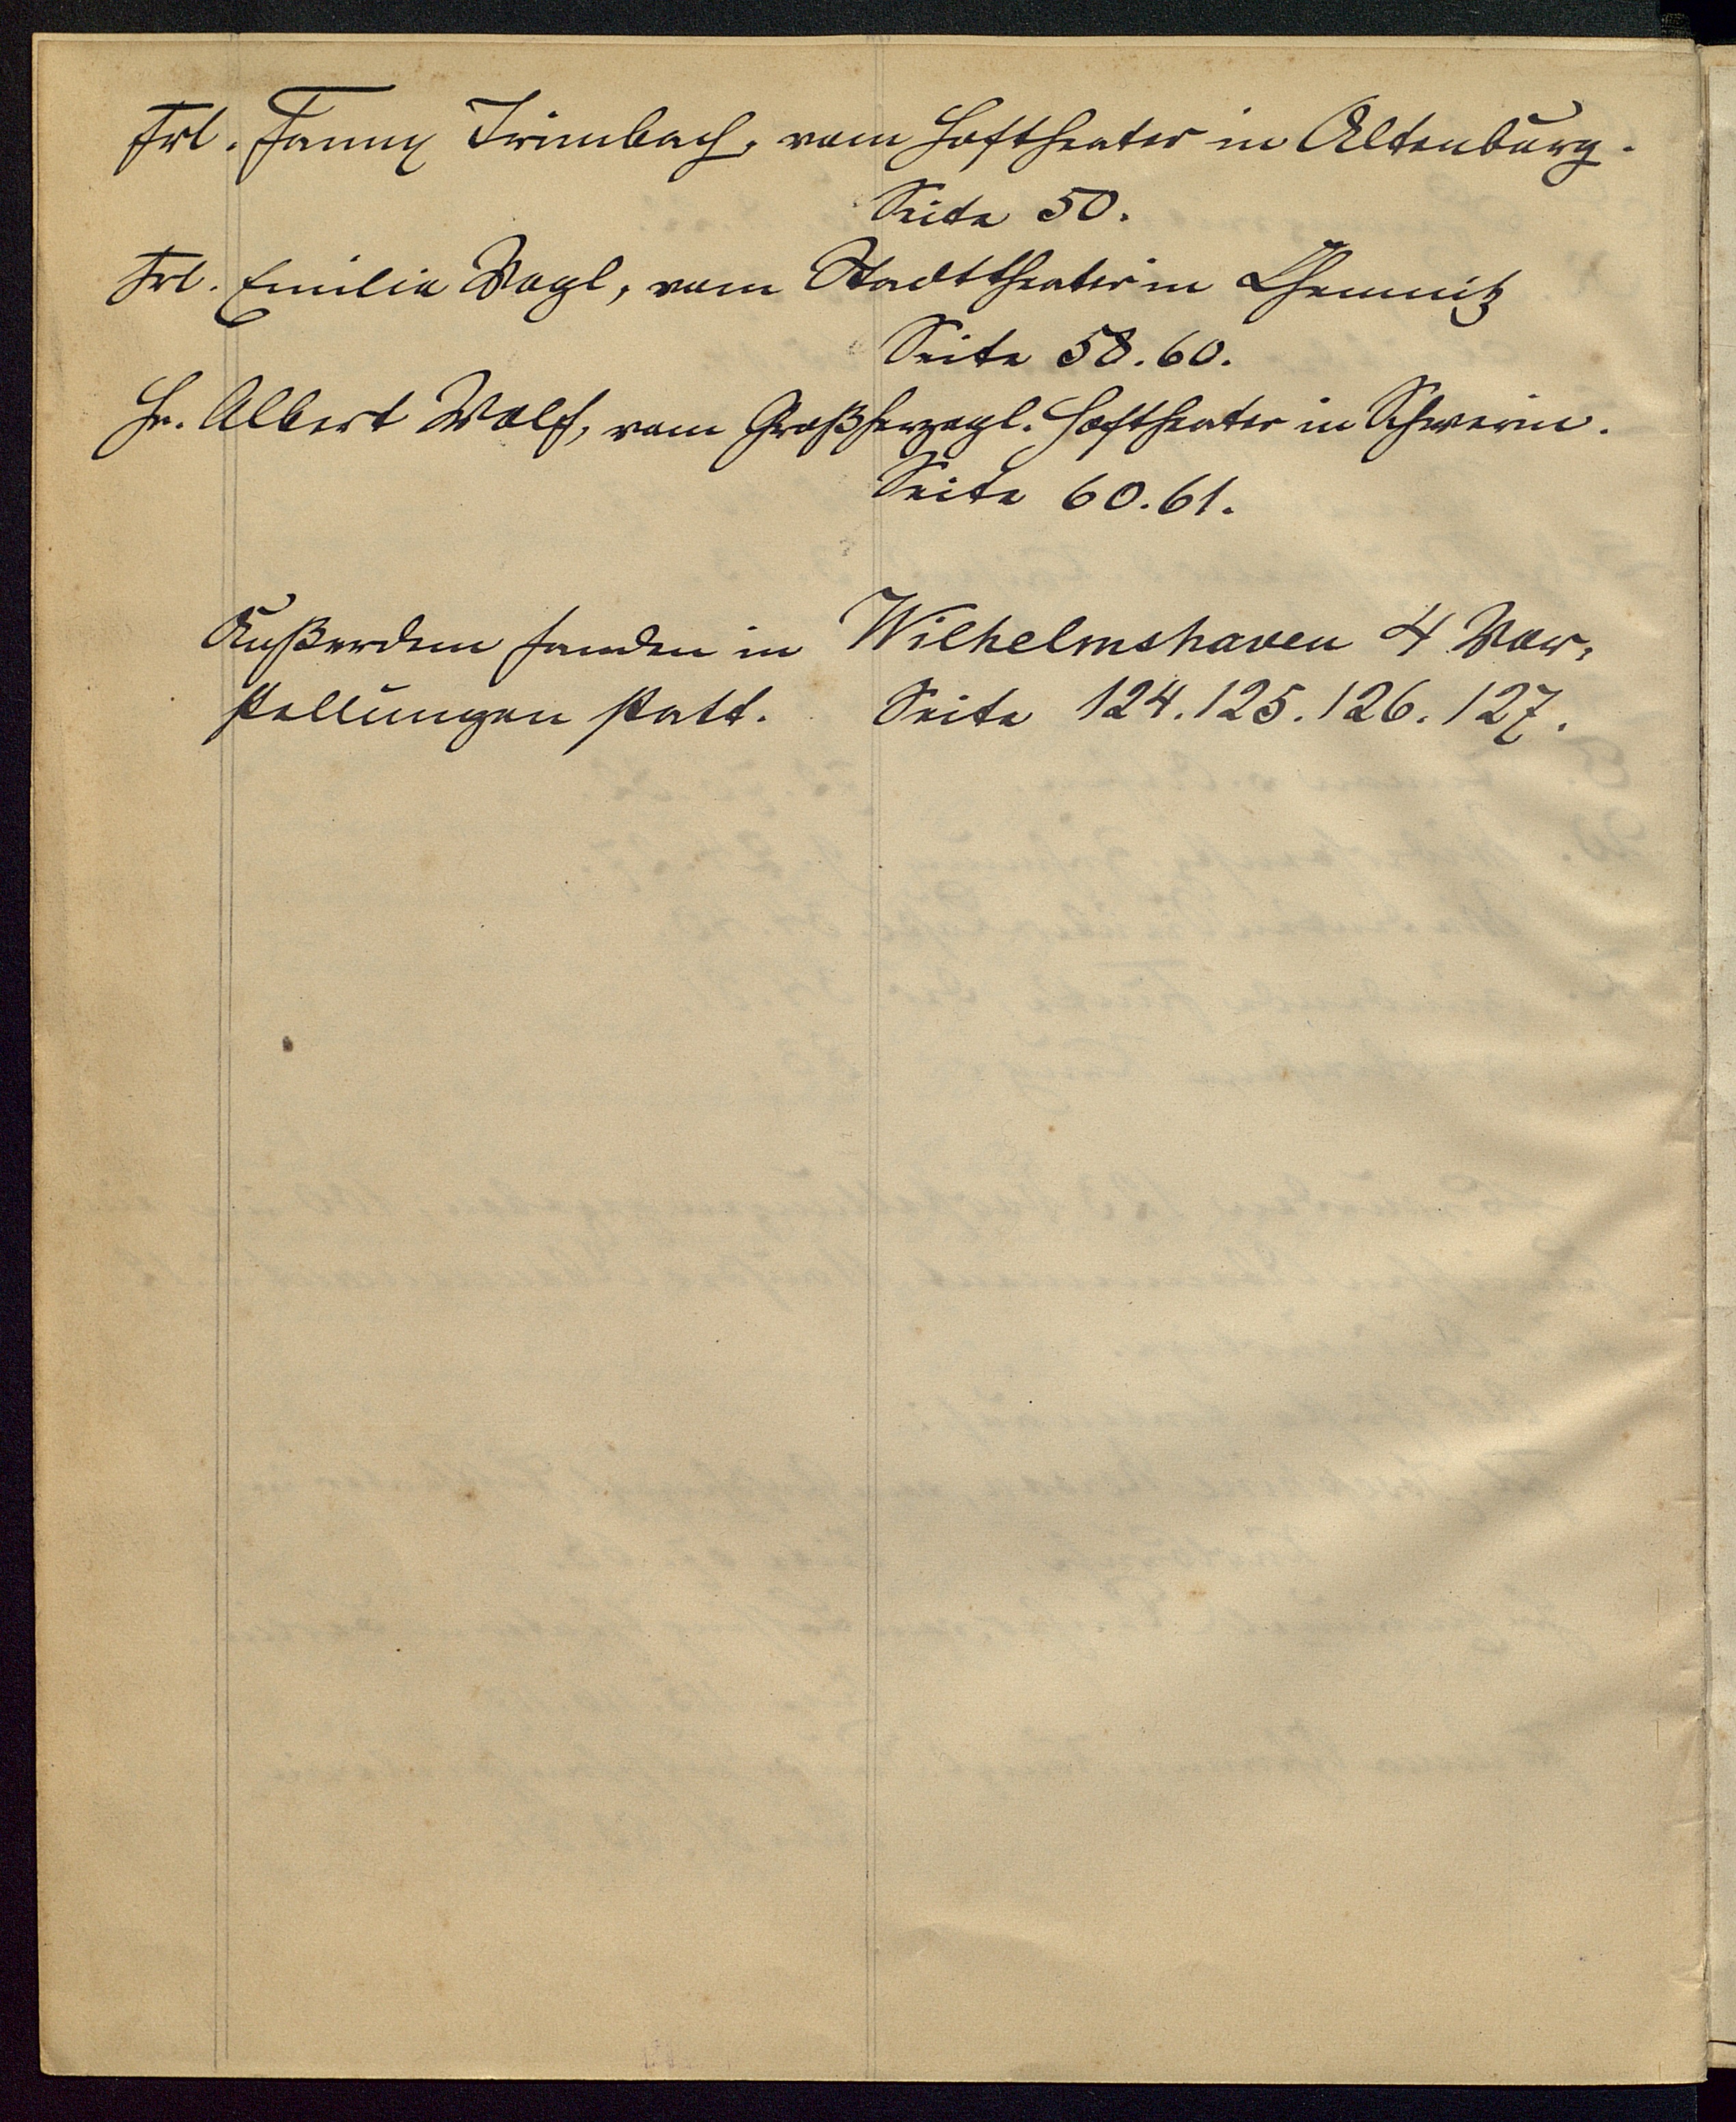 Frl. Fanny Trimbach, vom Hoftheater in Altenburg.
Seite 50.
Frl. Emilie Vogl, vom Stadttheater in Chemnitz
Seite 58. 60.
Hr. Albert Wolf, vom Großherzogl. Hoftheater in Schwerin.
Seite 60. 61.
Außerdem fanden in Wilhelmshaven 4 Vor-
stellungen statt. Seite 124. 125. 126. 127.